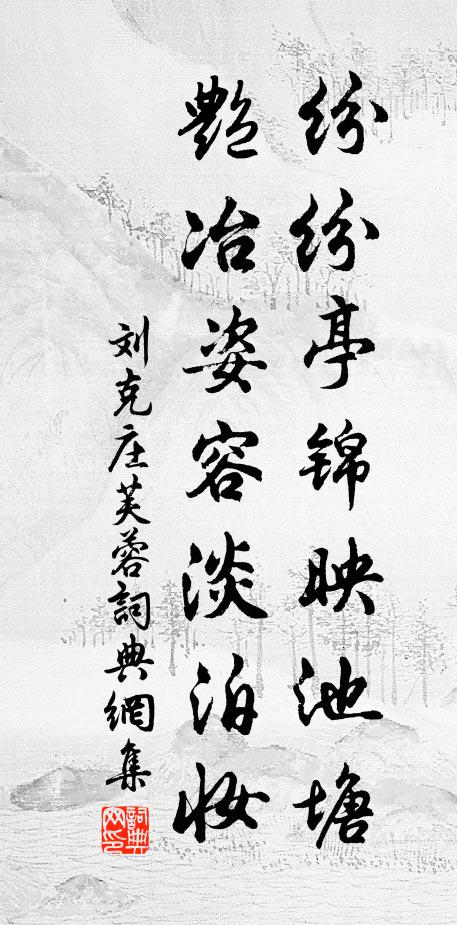 纷纷亭锦映池塘
艷冶姿容淡泊妆
刘克庄芙蓉詞典網集
詞典
网印